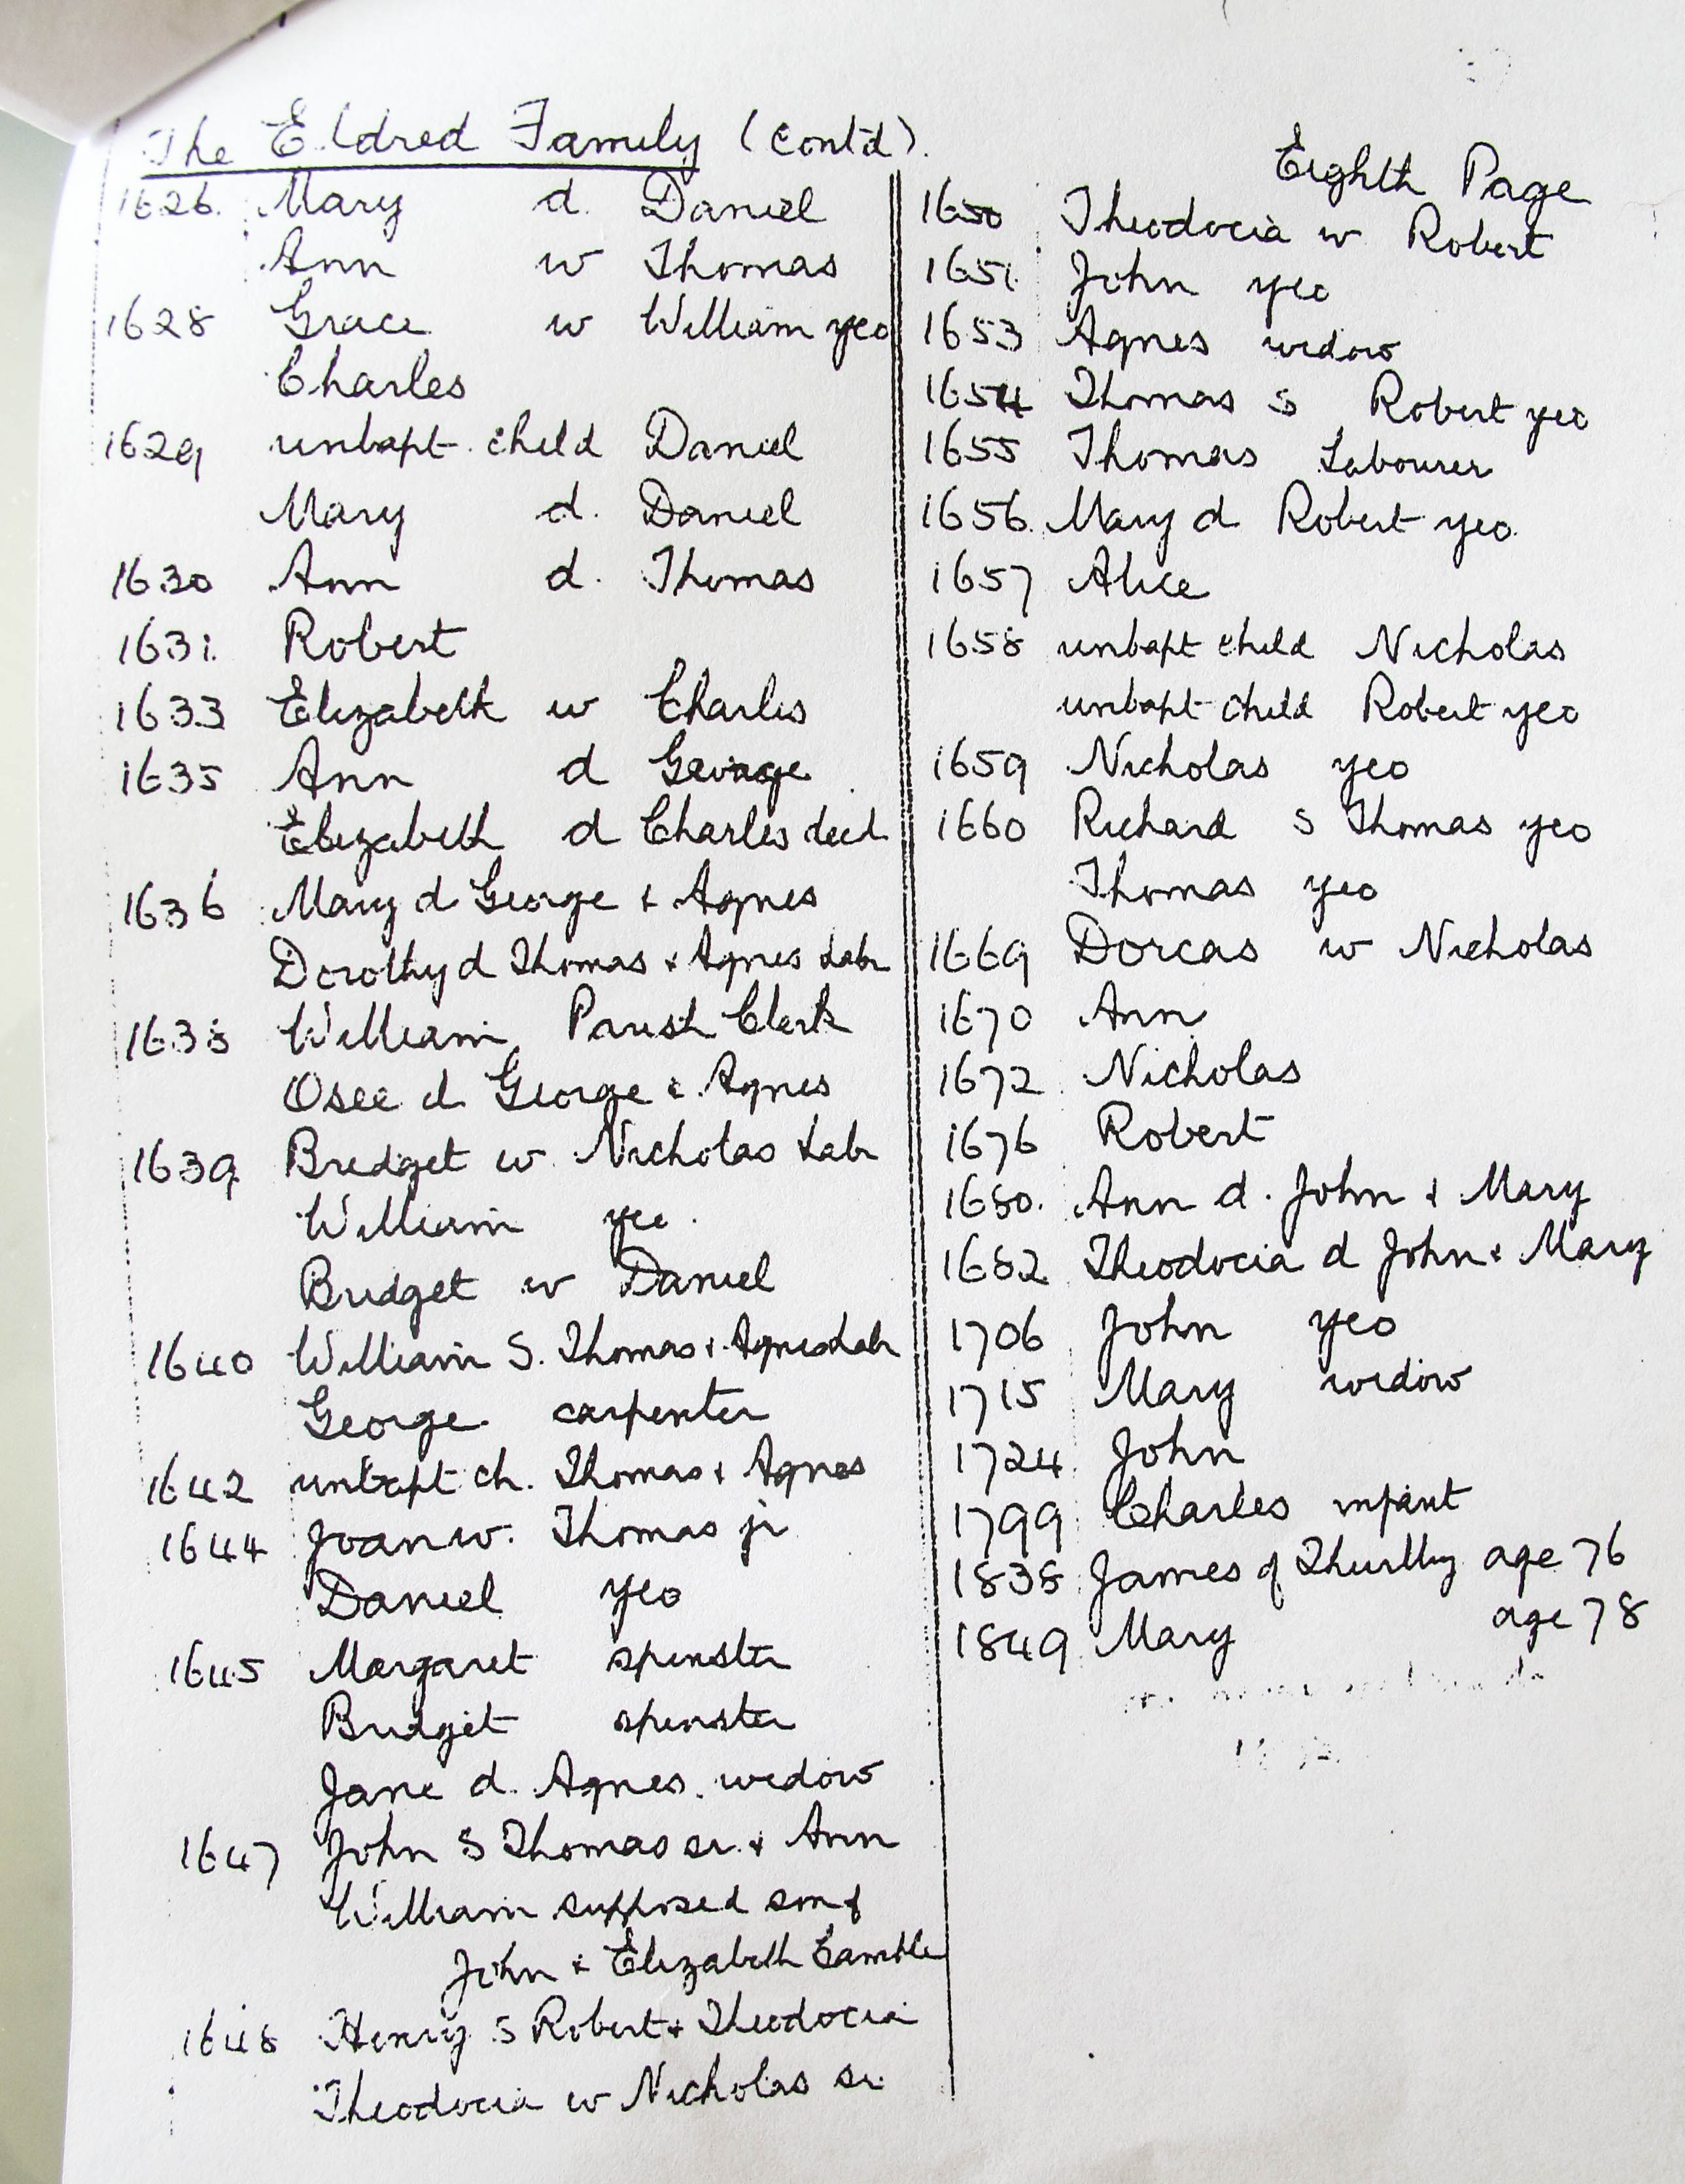 The Eldred Family (contd).
Eighth Page
1626. Mary d. Daniel
Ann w Thomas
1628 Grace w William yeo
Charles
1629 unbapt child Daniel
Mary d. Daniel
1630 Ann d. Thomas
1631. Robert
1633 Elizabeth w Charles
1635 Ann d George
Elizabeth d Charles decd
1636 Mary d George & Agnes
Dorothy d Thomas & Agnes Labr
1638 William Parish Clerk
Osee d George & Agnes
1639 Bridget w Nicholas Labr
William yeo.
Bridget w Daniel
1640 William S. Thomas & Agnes Labr
George carpenter
1642 unbapt ch. Thomas & Agnes
1644 Joan w. Thomas jr
Daniel yeo
1645 Margaret spinster
Bridget spinster
Jane d. Agnes. widow
1647 John S Thomas sr. & Ann
William supposed son of
John & Elizabeth Gamble
1648 Henry S Robert & Theodocia
Theodocia w Nicholas sr.
1650 Theodocia w Robert
1651. John yeo
1653 Agnes widow
1654 Thomas S Robert yeo
1655 Thomas Labourer
1656. Mary d Robert yeo.
1657 Alice
1658 unbapt child Nicholas
unbapt child Robert yeo
1659 Nicholas yeo
1660 Richard S Thomas yeo
Thomas yeo
1669 Dorcas w Nicholas
1670 Ann
1672 Nicholas
1676 Robert
1680. Ann d. John & Mary
1682 Theodocia d John & Mary
1706 John yeo
1715 Mary widow
1724 John
1799 Charles infant
1838 James of Thurlby age 76
1849 Mary age 78